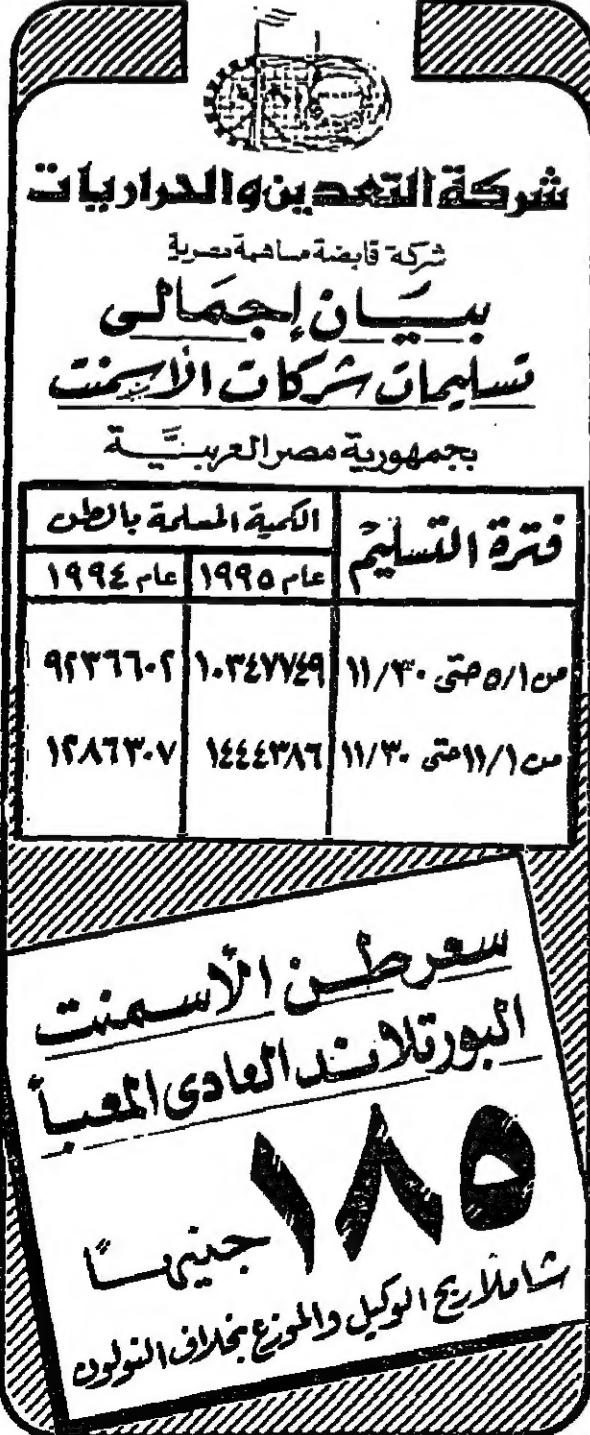 شركة التعدين والحراريات
شركة قابضة مساهمة مصرية
بيان إجمالى
تسليمات شركات الأسمنت
بجمهورية مصر العربية
فترة التسليم الكمية المسلمة بالطن
عام ١٩٩٥ عام ١٩٩٤
من ٥/١ حتى ١١/٣٠ ١٠٣٤٧٧٤٩ ٩٢٣٦٦٠٢
من ١١/١ حتى ١١/٣٠ ١٤٤٤٣٨٦ ١٢٨٦٣٠٧
سعر طن الأسمنت
البورتلاند العادى المعبأ
١٨٥ جنيهًا
شاملًا ربح الوكيل والموزع بخلاف النولون